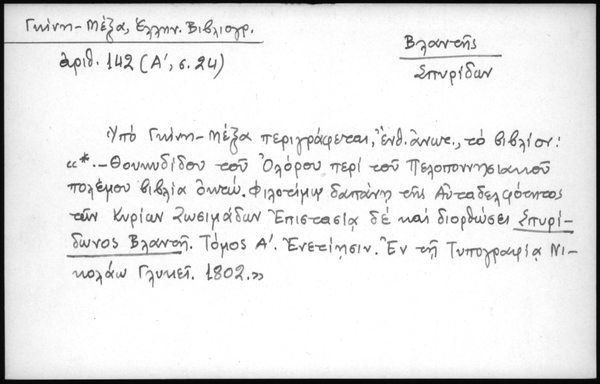 Γκίνη-Μέξα, Ἑλλην. Βιβλιογρ.
ἀριθ. 142 (Α', σ. 24)
Βλαντῆς
Σπυρίδων
Ὑπό Γκίνη-Μέξα περιγράφεται, ἔνθ. ἄνωτ., τό βιβλίον:
«*.-Θουκυδίδου τοῦ Ὀλόρου περί τοῦ Πελοποννησιακοῦ
πολέμου βιβλία ὀκτώ. Φιλοτίμῳ δαπάνῃ τῆς Αὐταδελφότητος
τῶν Κυρίων Ζωσιμάδων Ἐπιστασίᾳ δέ καί διορθώσει Σπυρί-
δωνος Βλαντῆ. Τόμος Α'. Ἐνετίῃσιν. Ἐν τῇ Τυπογραφίᾳ Νι-
κολάῳ Γλυκεῖ. 1802.»